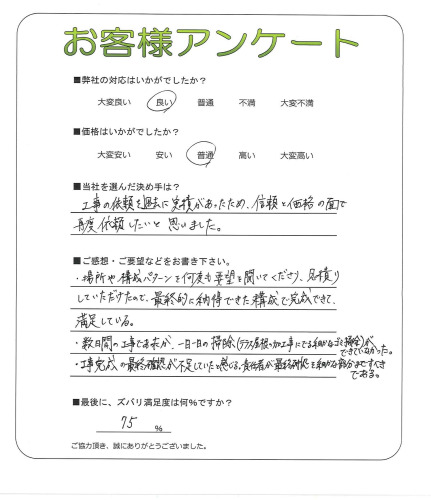 お客様アンケート
■弊社の対応はいかがでしたか?
大変良い 良い 普通 不満 大変不満
■価格はいかがでしたか?
大変安い 安い 普通 高い 大変高い
■当社を選んだ決め手は?
工事の依頼を過去に見積があったため、信頼と価格の面で
再度依頼したいと思いました。
■ご感想・ご要望などをお書き下さい。
・場所や構成パターンを何度も要望を聞いてくださり、見積り
していただけたので、最終的に納得できた構成で完成できて、
満足している。
・数日間の工事であれが、一日一日の掃除(テラス屋根の加工事にでる細かなゴミ掃除)が
できていなかった。
・工事完成の最終確認が不足していたと感じる。責任者が最終確認を細かな部分まですべき
である。
■最後に、ズバリ満足度は何%ですか?
75 %
ご協力頂き、誠にありがとうございました。